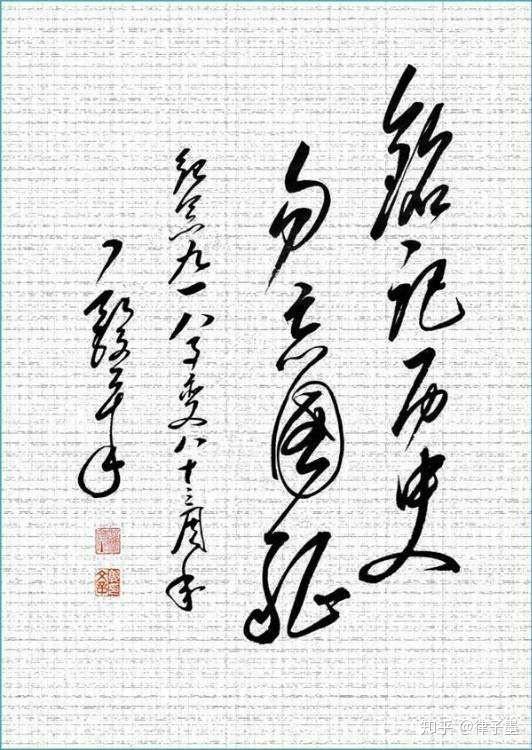 铭记历史
勿忘國耻
纪念九一八事变八十三周年
知乎 @律子墨